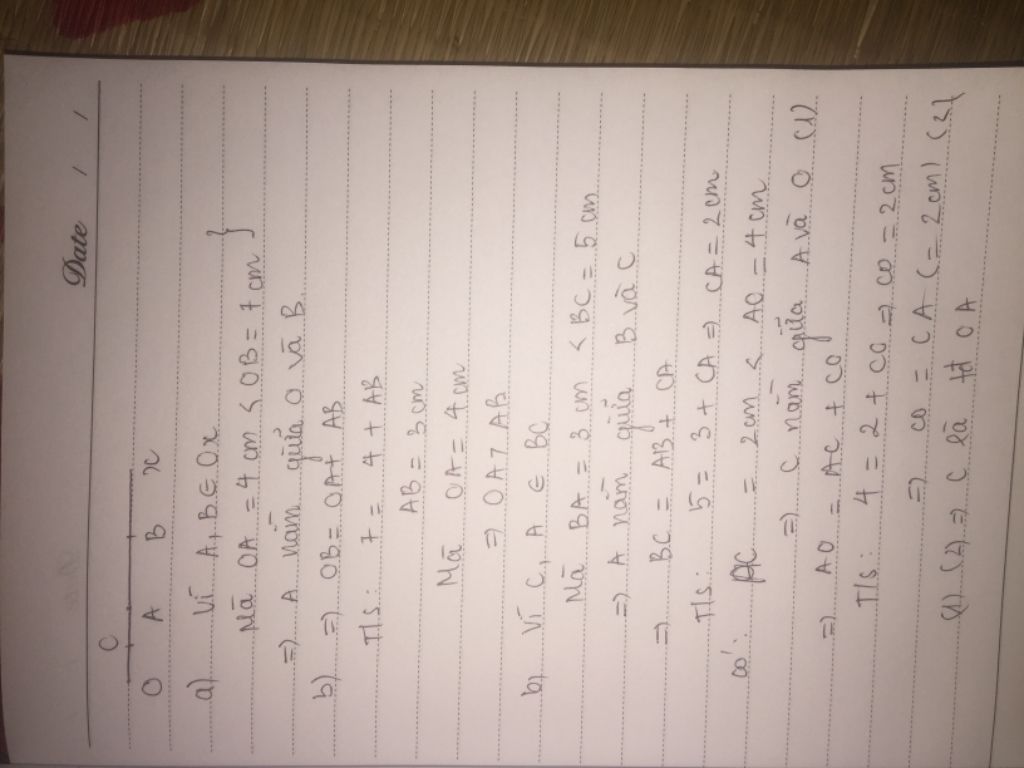 Date / /
C
O A B x
a) Vì A, B ∈ Ox
Mà OA = 4 cm < OB = 7 cm }
=> A nằm giữa O và B
b) => OB = OA + AB
T/s: 7 = 4 + AB
AB = 3 cm
Mà OA = 4 cm
=> OA > AB
b) Vì C, A ∈ BC
Mà BA = 3 cm < BC = 5 cm
=> A nằm giữa B và C
=> BC = AB + CA
T/s: 5 = 3 + CA => CA = 2 cm
có: AC = 2cm < AO = 4 cm
=> C nằm giữa A và O (1)
=> AO = AC + CO
T/s: 4 = 2 + CO => CO = 2 cm
=> CO = CA (= 2 cm) (2)
(1) (2) => C là tđ OA